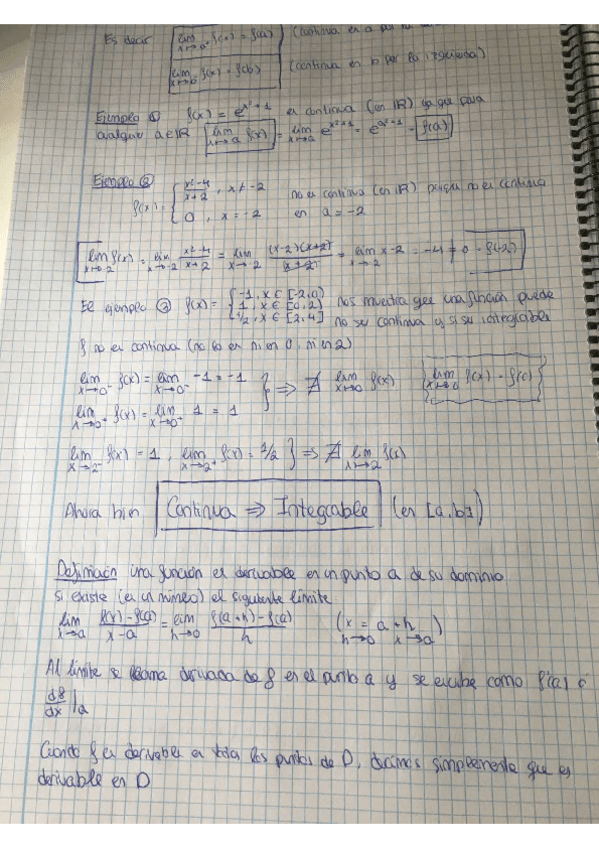 Es decir lim x→a⁺ f(x) = f(a) (continua en a por
lim x→b⁻ f(x) = f(b) (continua en b por la izquierda)
Ejemplo ① f(x) = e^(x²+1) es continua (en ℝ) ya que para
cualquier a∈ℝ lim x→a f(x) = lim x→a e^(x²+1) = e^(a²+1) = f(a)
Ejemplo ② f(x) = { (x²-4)/(x+2), x ≠ -2
0, x = -2
no es continua (en ℝ) porque no es continua
en a = -2
lim x→-2 f(x) = lim x→-2 (x²-4)/(x+2) = lim x→-2 (x-2)(x+2)/(x+2) = lim x→-2 x-2 = -4 ≠ 0 = f(-2)
El ejemplo ② f(x) = { -1, x ∈ [-2,0)
1, x ∈ [0,2)
1/2, x ∈ [2,4]
nos muestra que una función puede
no ser continua y si ser integrable
f no es continua (no lo es ni en 0, ni en 2)
lim x→0⁻ f(x) = lim x→0⁻ -1 = -1
lim x→0⁺ f(x) = lim x→0⁺ 1 = 1 } ⇒ ∄ lim x→0 f(x) { lim x→0 f(x) = f(0) }
lim x→2⁻ f(x) = 1, lim x→2⁺ f(x) = 1/2 } ⇒ ∄ lim x→2 f(x)
Ahora bien Continua ⇒ Integrable (en [a,b])
Definición una función es derivable en un punto a de su dominio
si existe (es un número) el siguiente límite
lim x→a (f(x)-f(a))/(x-a) = lim h→0 (f(a+h)-f(a))/h (x = a+h h→0 x→a)
Al límite se llama derivada de f en el punto a y se escribe como f'(a) ó
df/dx |a
Cuando f es derivable en todos los puntos de D, decimos simplemente que es
derivable en D